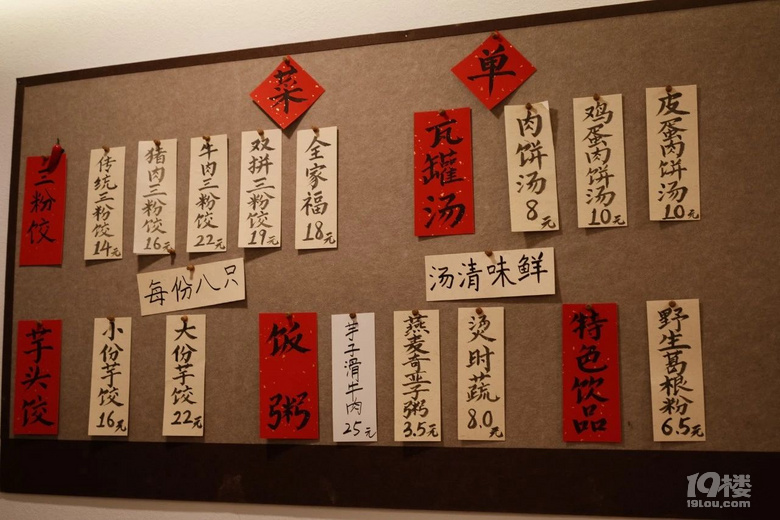 菜单
三粉饺
传统三粉饺
14元
猪肉三粉饺
16元
牛肉三粉饺
22元
双拼三粉饺
19元
全家福
18元
每份八只
瓦罐汤
肉饼汤
8元
鸡蛋肉饼汤
10元
皮蛋肉饼汤
10元
汤清味鲜
芋头饺
小份芋饺
16元
大份芋饺
22元
饭粥
芋子滑牛肉
25元
燕麦奇亚子粥
3.5元
烫时蔬
8.0元
特色饮品
野生葛根粉
6.5元
19楼
19lou.com